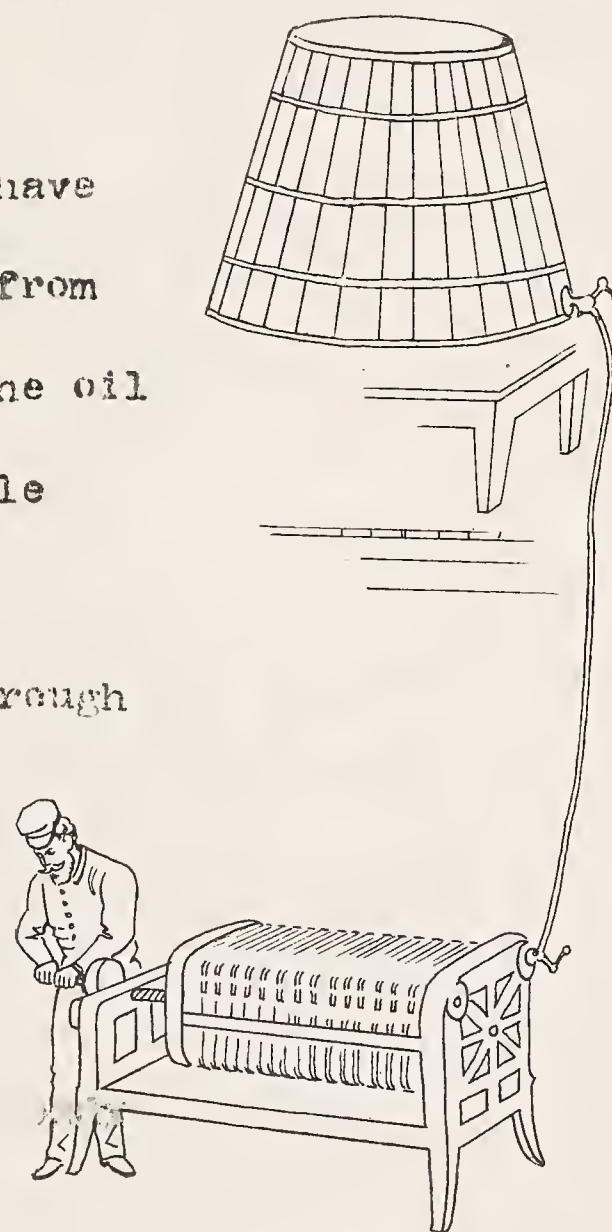 have
from
he oil
le
rough